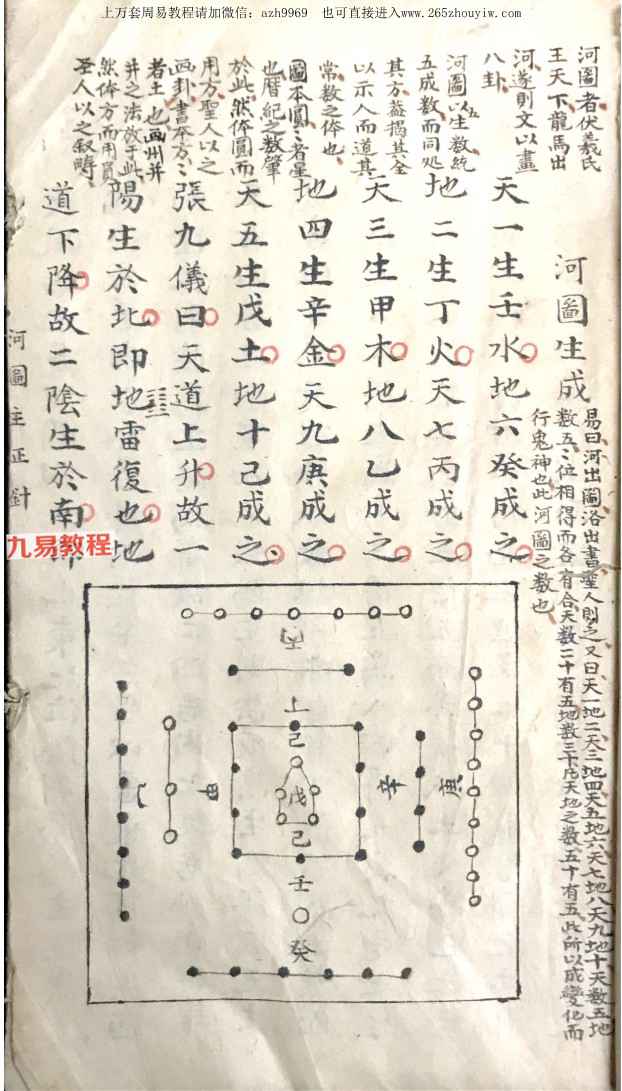 上万套周易教程请加微信：azh9969 也可直接进入www.265zhouyiw.com
河圖者伏羲氏
王天下龍馬出
河遂則文以畫
八卦
河圖以五生數統
五成數而同処
其方葢揭其全
以示人而道其
常數之体也
圖本圓圓者星
也曆紀之数肇
於此然体圓而
用方聖人以之
画卦書本方方
者土也画州井
井之法放于此
然体方而用員
圣人以之叙疇
河圖生成
易曰河出圖洛出書聖人則之又曰天一地二天三地四天五地六天七地八天九地十天数五地
数五〻位相得而各有合天数二十有五地数三十凡天地之数五十有五此所以成變化而
行鬼神也此河圖之数也
天一生壬水地六癸成之
地二生丁火天七丙成之
天三生甲木地八乙成之
地四生辛金天九庚成之
天五生戊土地十己成之
張九儀曰天道上升故一
陽生於北即地雷復也地
道下降故二陰生於南
河圖主正針
九易教程
上
己
戊
己
壬
癸
甲
辛
庚